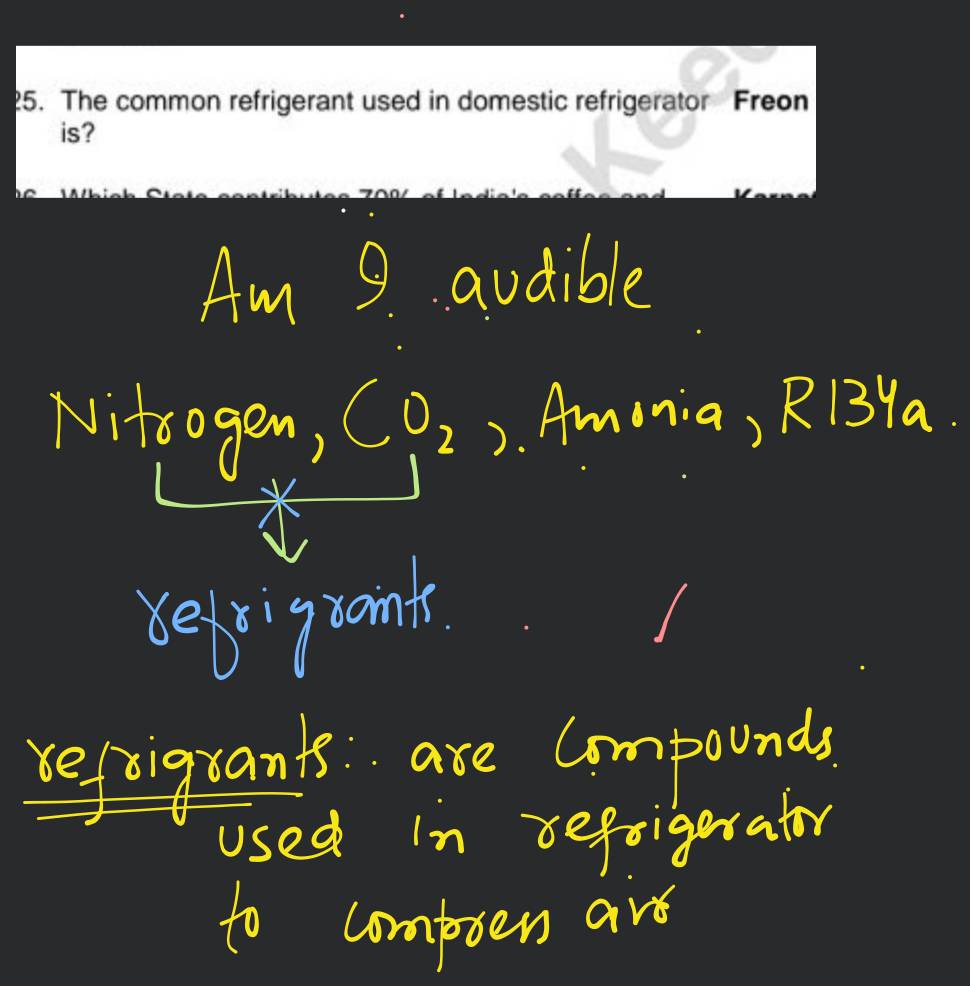 25. The common refrigerant used in domestic refrigerator Freon
is?
26. Which State contributes 70% of India's coffee and
Kee
Am I audible
Nitrogen, CO2, Amonia, R134a.
refrigrants.
refrigrants: are Compounds
used in refrigerator
to compress air